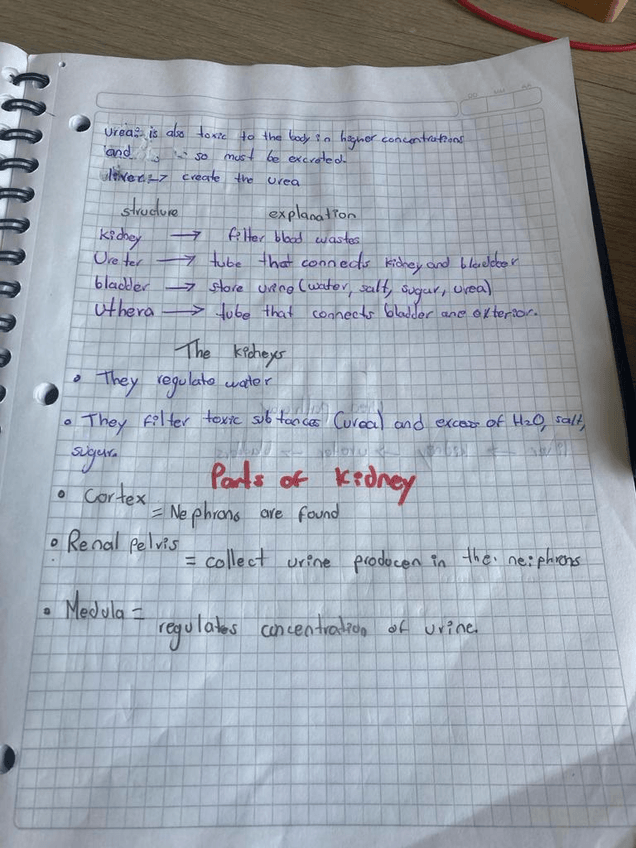 urea: is also toxic to the body in higher concentrations
and so must be excreted.
liver -> create the urea
structure explanation
kidney -> filter blood wastes
Ureter -> tube that connects kidney and bladder
bladder -> store urine (water, salt, sugar, urea)
Uthera -> tube that connects bladder and exterior.
The kidneys
• They regulate water
• They filter toxic substances (urea) and excess of H2O, salt,
sugar.
Parts of kidney
• Cortex
= Nephrons are found
• Renal pelvis
= collect urine producen in the neiphrons
• Medula =
regulates concentration of urine.